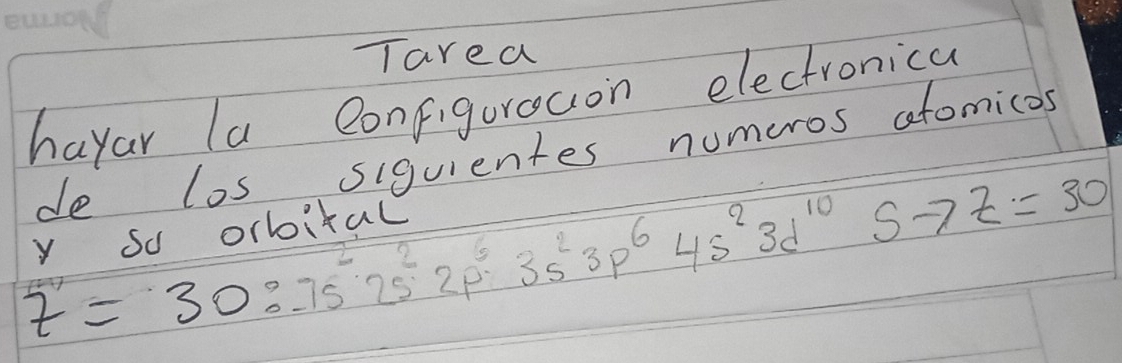 Norma
Tarea
hayar la configuracion electronica
de los siguientes numeros atomicos
y su orbital
Z = 30: 1s² 2s² 2p⁶ 3s² 3p⁶ 4s² 3d¹⁰ S→Z=30